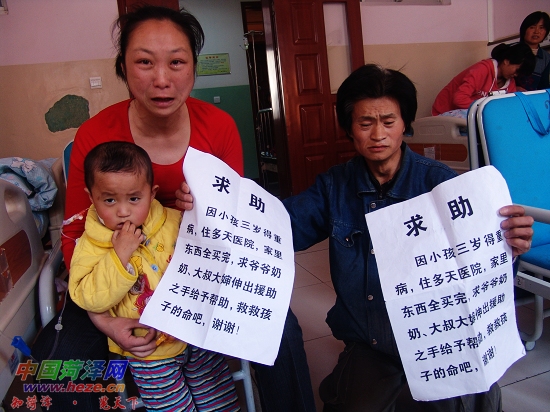 求助
因小孩三岁得重
病，住多天医院，家里
东西全买完，求爷爷奶
奶、大叔大婶伸出援助
之手给予帮助，救救孩
子的命吧，谢谢！
求助
因小孩三岁得重
病，住多天医院，家里
东西全买完，求爷爷奶
奶、大叔大婶伸出援助
之手给予帮助，救救孩
子的命吧，谢谢！
中国菏泽网
www.heze.cn
知菏泽 · 览天下